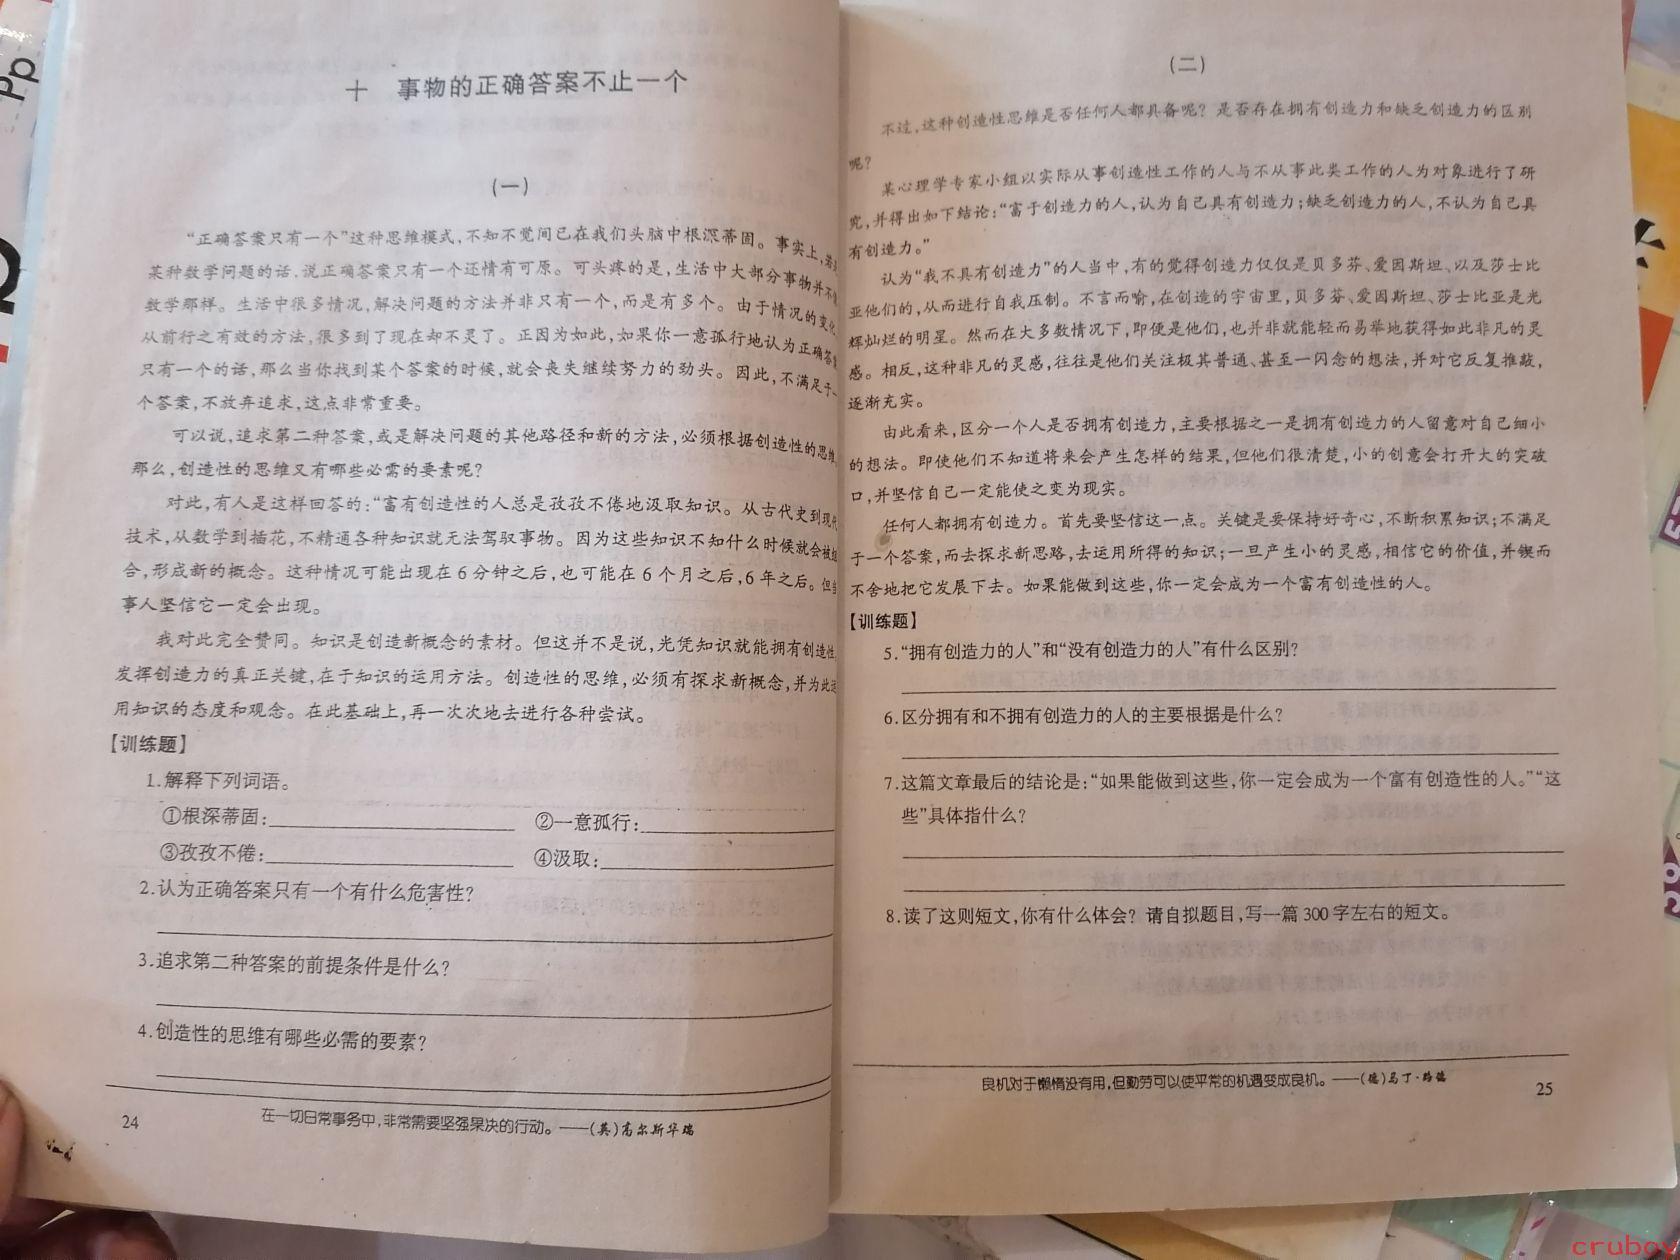 Pp
十 事物的正确答案不止一个
(一)
“正确答案只有一个”这种思维模式,不知不觉间已在我们头脑中根深蒂固。事实上,若是
某种数学问题的话,说正确答案只有一个还情有可原。可头疼的是,生活中大部分事物并不像
数学那样。生活中很多情况,解决问题的方法并非只有一个,而是有多个。由于情况的变化,
从前行之有效的方法,很多到了现在却不灵了。正因为如此,如果你一意孤行地认为正确答案
只有一个的话,那么当你找到某个答案的时候,就会丧失继续努力的劲头。因此,不满足于一
个答案,不放弃追求,这点非常重要。
可以说,追求第二种答案,或是解决问题的其他路径和新的方法,必须根据创造性的思维。
那么,创造性的思维又有哪些必需的要素呢?
对此,有人是这样回答的:“富有创造性的人总是孜孜不倦地汲取知识。从古代史到现代
技术,从数学到插花,不精通各种知识就无法驾驭事物。因为这些知识不知什么时候就会被组
合,形成新的概念。这种情况可能出现在6分钟之后,也可能在6个月之后,6年之后。但当
事人坚信它一定会出现。
我对此完全赞同。知识是创造新概念的素材。但这并不是说,光凭知识就能拥有创造性,
发挥创造力的真正关键,在于知识的运用方法。创造性的思维,必须有探求新概念,并为此运
用知识的态度和观念。在此基础上,再一次次地去进行各种尝试。
【训练题】
1.解释下列词语。
①根深蒂固: ②一意孤行:
③孜孜不倦: ④汲取:
2.认为正确答案只有一个有什么危害性?
3.追求第二种答案的前提条件是什么?
4.创造性的思维有哪些必需的要素?
24
在一切日常事务中,非常需要坚强果决的行动。——(英)高尔斯华瑞
(二)
不过,这种创造性思维是否任何人都具备呢?是否存在拥有创造力和缺乏创造力的区别
呢?
某心理学专家小组以实际从事创造性工作的人与不从事此类工作的人为对象进行了研
究,并得出如下结论:“富于创造力的人,认为自己具有创造力;缺乏创造力的人,不认为自己具
有创造力。”
认为“我不具有创造力”的人当中,有的觉得创造力仅仅是贝多芬、爱因斯坦、以及莎士比
亚他们的,从而进行自我压制。不言而喻,在创造的宇宙里,贝多芬、爱因斯坦、莎士比亚是光
辉灿烂的明星。然而在大多数情况下,即便是他们,也并非就能轻而易举地获得如此非凡的灵
感。相反,这种非凡的灵感,往往是他们关注极其普通、甚至一闪念的想法,并对它反复推敲,
逐渐充实。
由此看来,区分一个人是否拥有创造力,主要根据之一是拥有创造力的人留意对自己细小
的想法。即使他们不知道将来会产生怎样的结果,但他们很清楚,小的创意会打开大的突破
口,并坚信自己一定能使之变为现实。
任何人都拥有创造力。首先要坚信这一点。关键是要保持好奇心,不断积累知识;不满足
于一个答案,而去探求新思路,去运用所得的知识;一旦产生小的灵感,相信它的价值,并锲而
不舍地把它发展下去。如果能做到这些,你一定会成为一个富有创造性的人。
【训练题】
5.“拥有创造力的人”和“没有创造力的人”有什么区别?
6.区分拥有和不拥有创造力的人的主要根据是什么?
7.这篇文章最后的结论是:“如果能做到这些,你一定会成为一个富有创造性的人。”“这
些”具体指什么?
8.读了这则短文,你有什么体会?请自拟题目,写一篇300字左右的短文。
良机对于懒惰没有用,但勤劳可以使平常的机遇变成良机。——(德)马丁·路德
25
cruboy